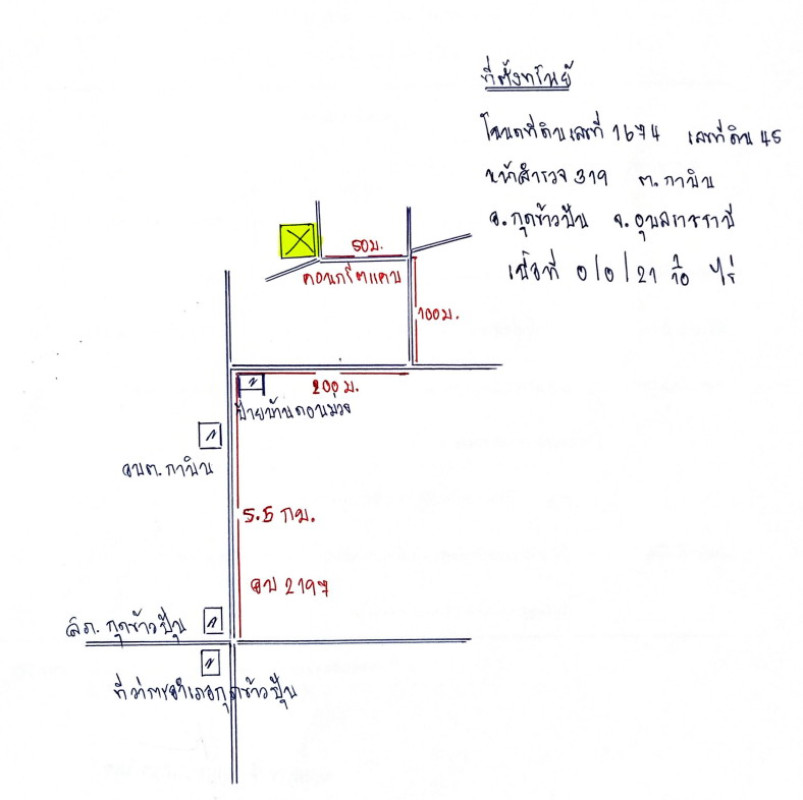 ที่ตั้งทรัพย์
โฉนดที่ดินเลขที่ 1674 เลขที่ดิน 45
หน้าสำรวจ 319 ต.กาบิน
อ.กุดข้าวปุ้น จ.อุบลราชธานี
เนื้อที่ 0/0/21 1/10 ไร่
50ม.
คอนกรีตแคบ
100ม.
200 ม.
ป้ายบ้านดอนม่วย
อบต.กาบิน
5.5 กม.
อบ 2197
สภ.กุดข้าวปุ้น
ที่ว่าการอำเภอกุดข้าวปุ้น